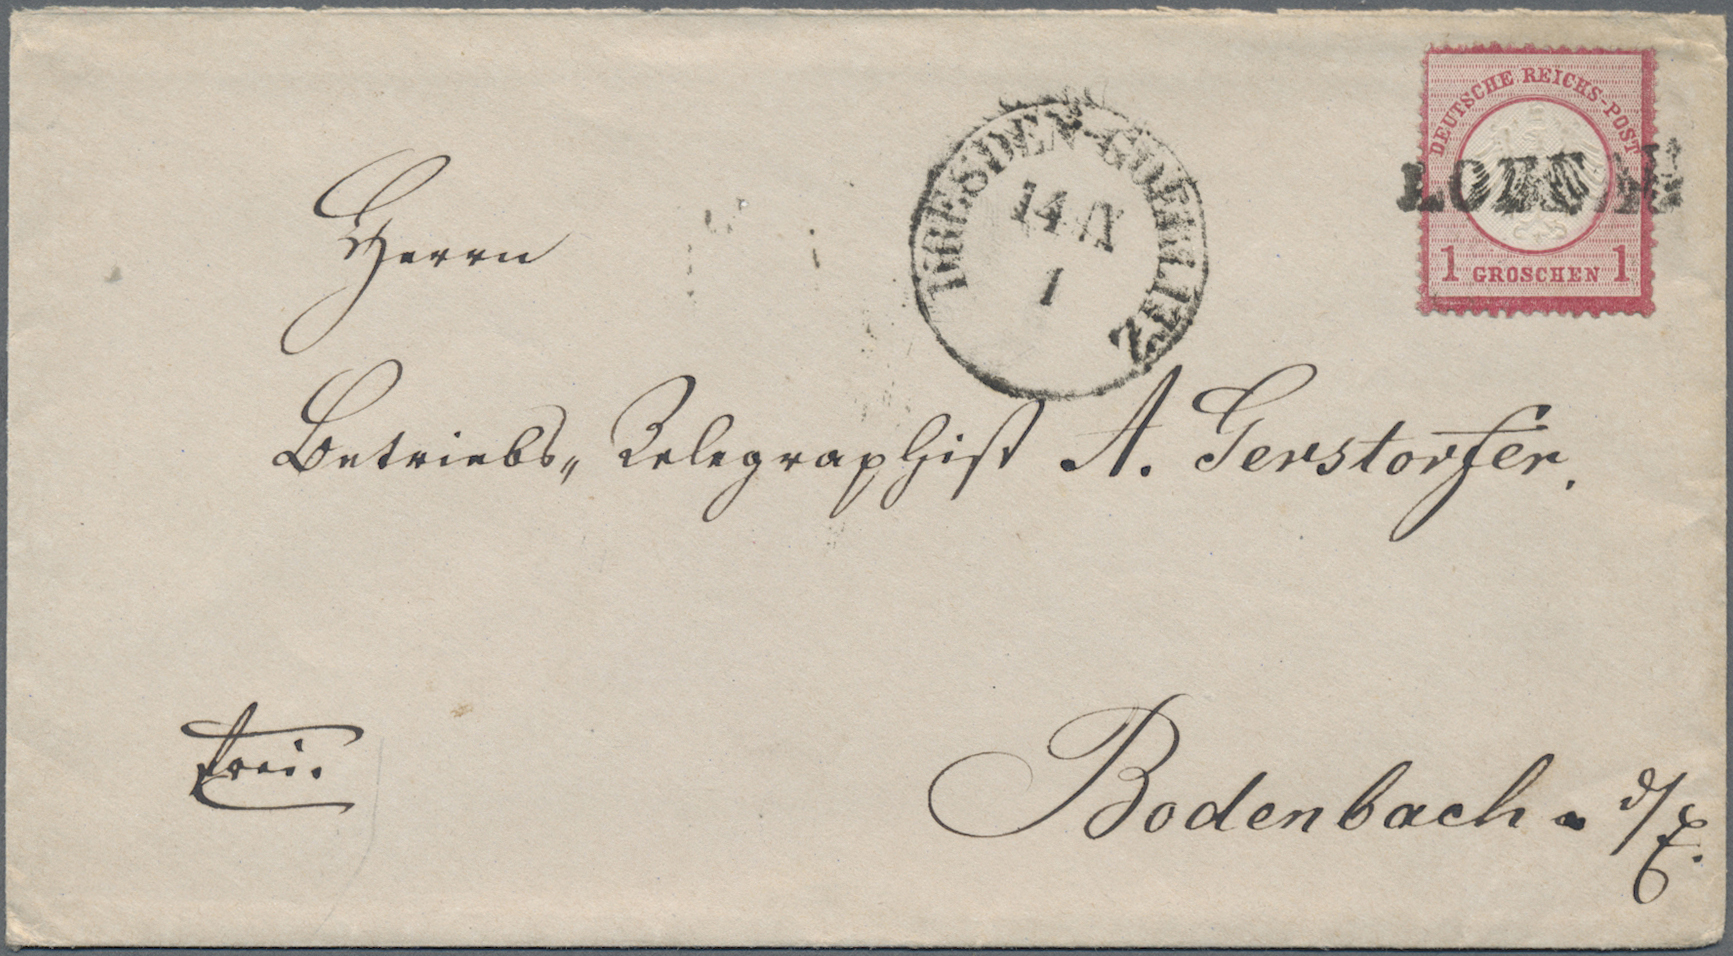 DEUTSCHE REICHS-POST
1 GROSCHEN 1
DRESDEN-GOERLITZ
14 / IX
1
Herrn
Betriebs-Telegraphist A. Gerstorfer.
frei.
Bodenbach a d/E.